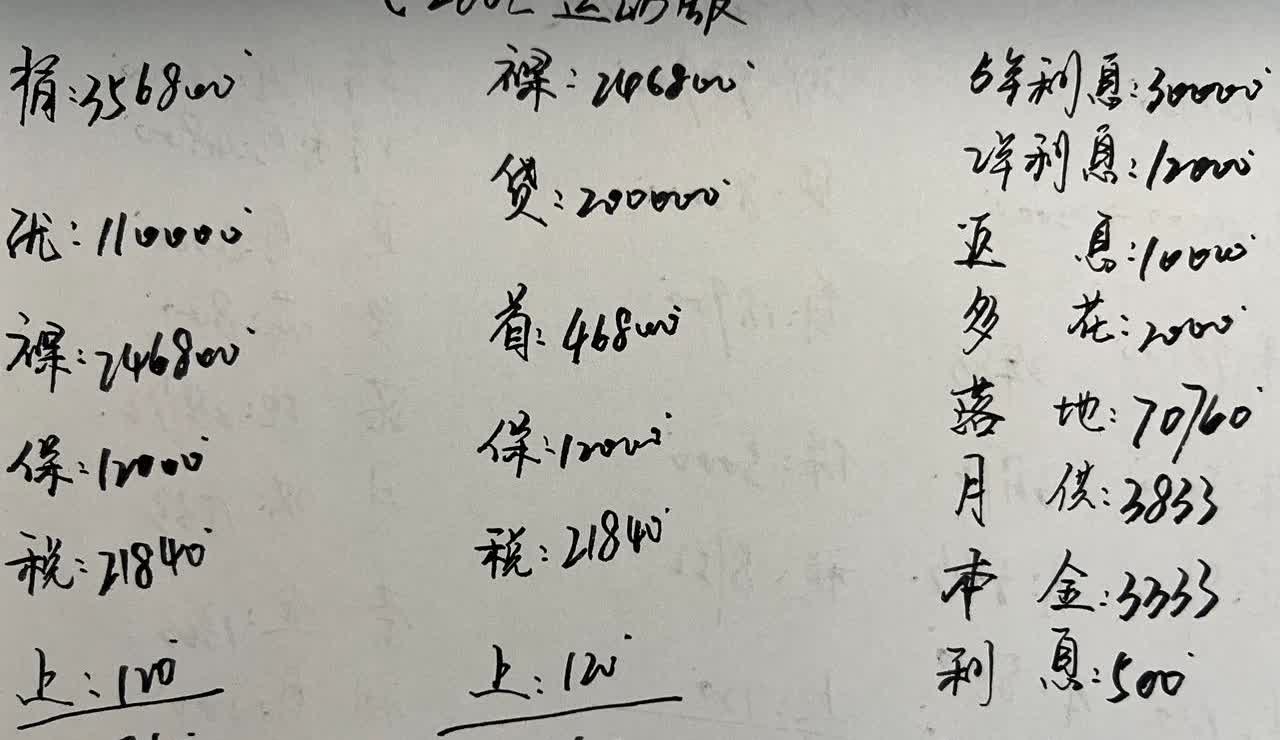 C200L 运动版
指:356800
优:110000
裸:246800
保:12000
税:21840
上:120
裸:246800
贷:200000
首:46800
保:12000
税:21840
上:120
5年利息:30000
2年利息:12000
返 息:10000
多 花:2000
落 地:70760
月 供:3833
本 金:3333
利 息:500